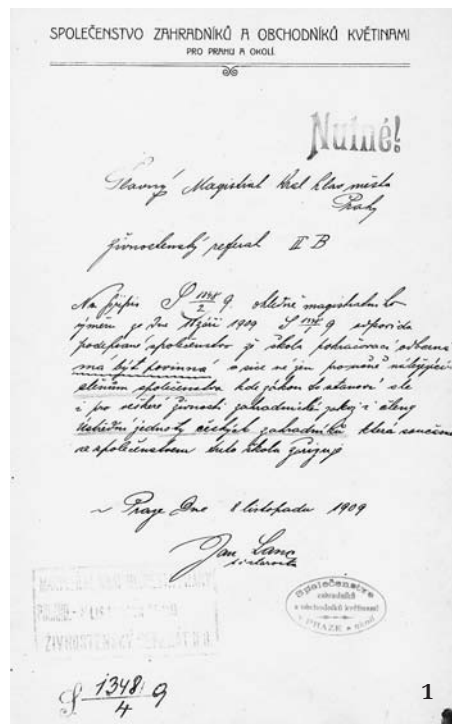 SPOLEČENSTVO ZAHRADNÍKŮ A OBCHODNÍKŮ KVĚTINAMI
PRO PRAHU A OKOLÍ.
Nutné!
Slavný Magistrat Král hlav města
Prahy
živnostenský referat II B
Na přípis 9. ohledně magistratního
výměru ze dne září 1909 9 odpovídá
podepsané společenstvo že škola pokračovací odborná
má být povinná a sice ne jen pro
členům společenstva kde zákon to stanoví ale
i pro veškeré živnosti zahradnické i členy
Ústřední jednoty českých zahradníků která současně
se společenstvem tuto školu zařizuje
v Praze Dne 8 listopadu 1909
Jan
starosta
Společenstvo
zahradníků
a obchodníků květinami
v PRAZE a okolí
1348
4 9
1